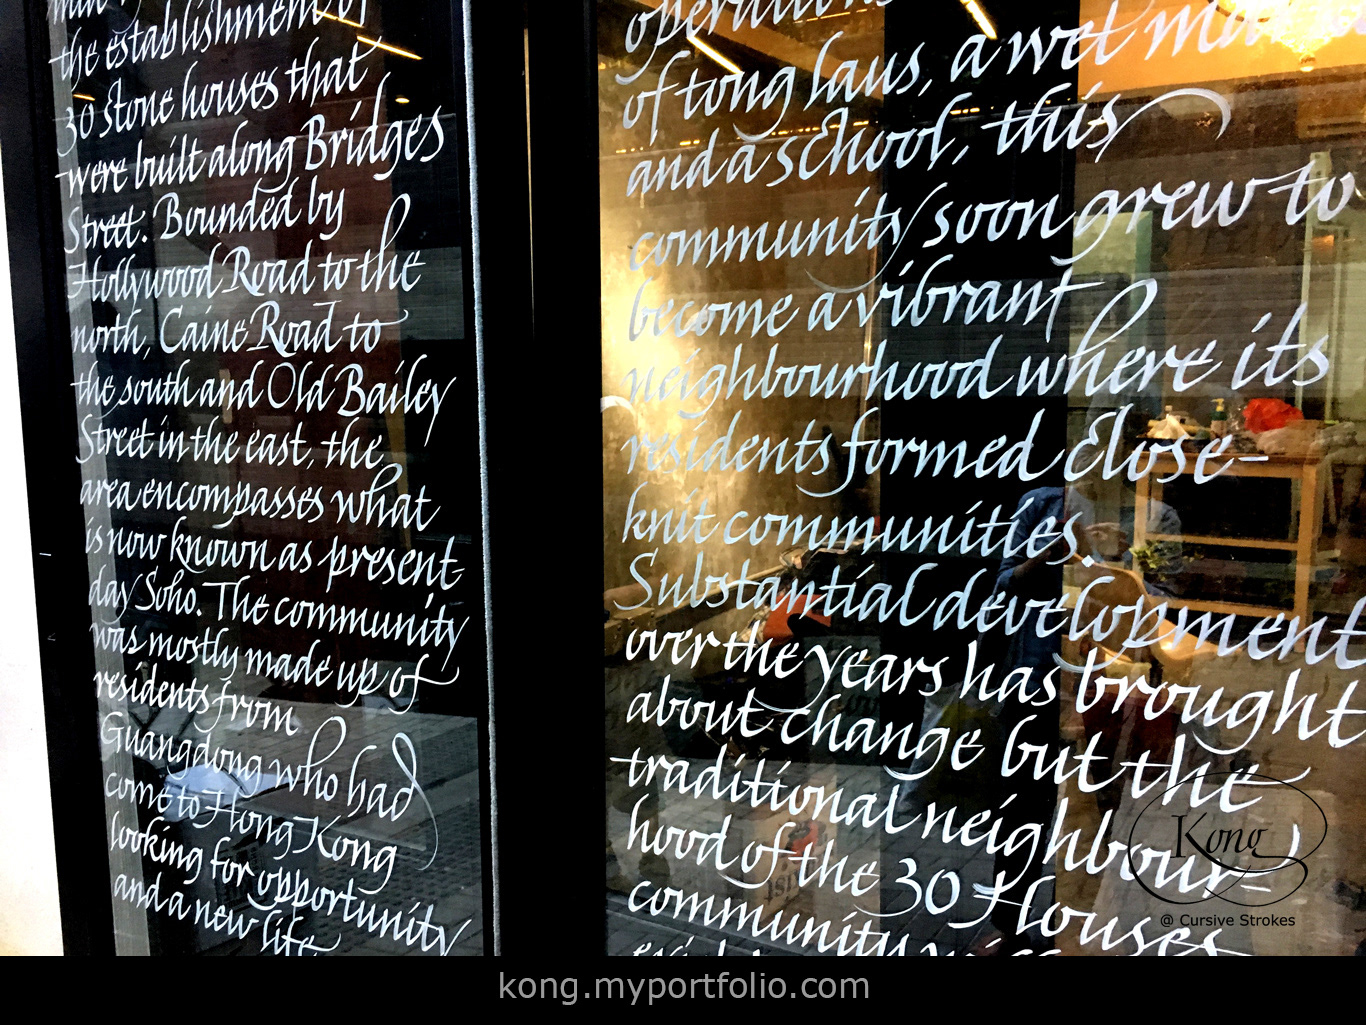 the establishment of
30 stone houses that
were built along Bridges
Street. Bounded by
Hollywood Road to the
north, Caine Road to
the south and Old Bailey
Street in the east, the
area encompasses what
is now known as present-
day Soho. The community
was mostly made up of
residents from
Guangdong who had
come to Hong Kong
looking for opportunity
and a new life
operations
of tong laus, a wet
and a school, this
community soon grew to
become a vibrant
neighbourhood where its
residents formed close-
knit communities.
Substantial development
over the years has brought
about change but the
traditional neighbour-
hood of the 30 Houses
community
Kong
@ Cursive Strokes
kong.myportfolio.com